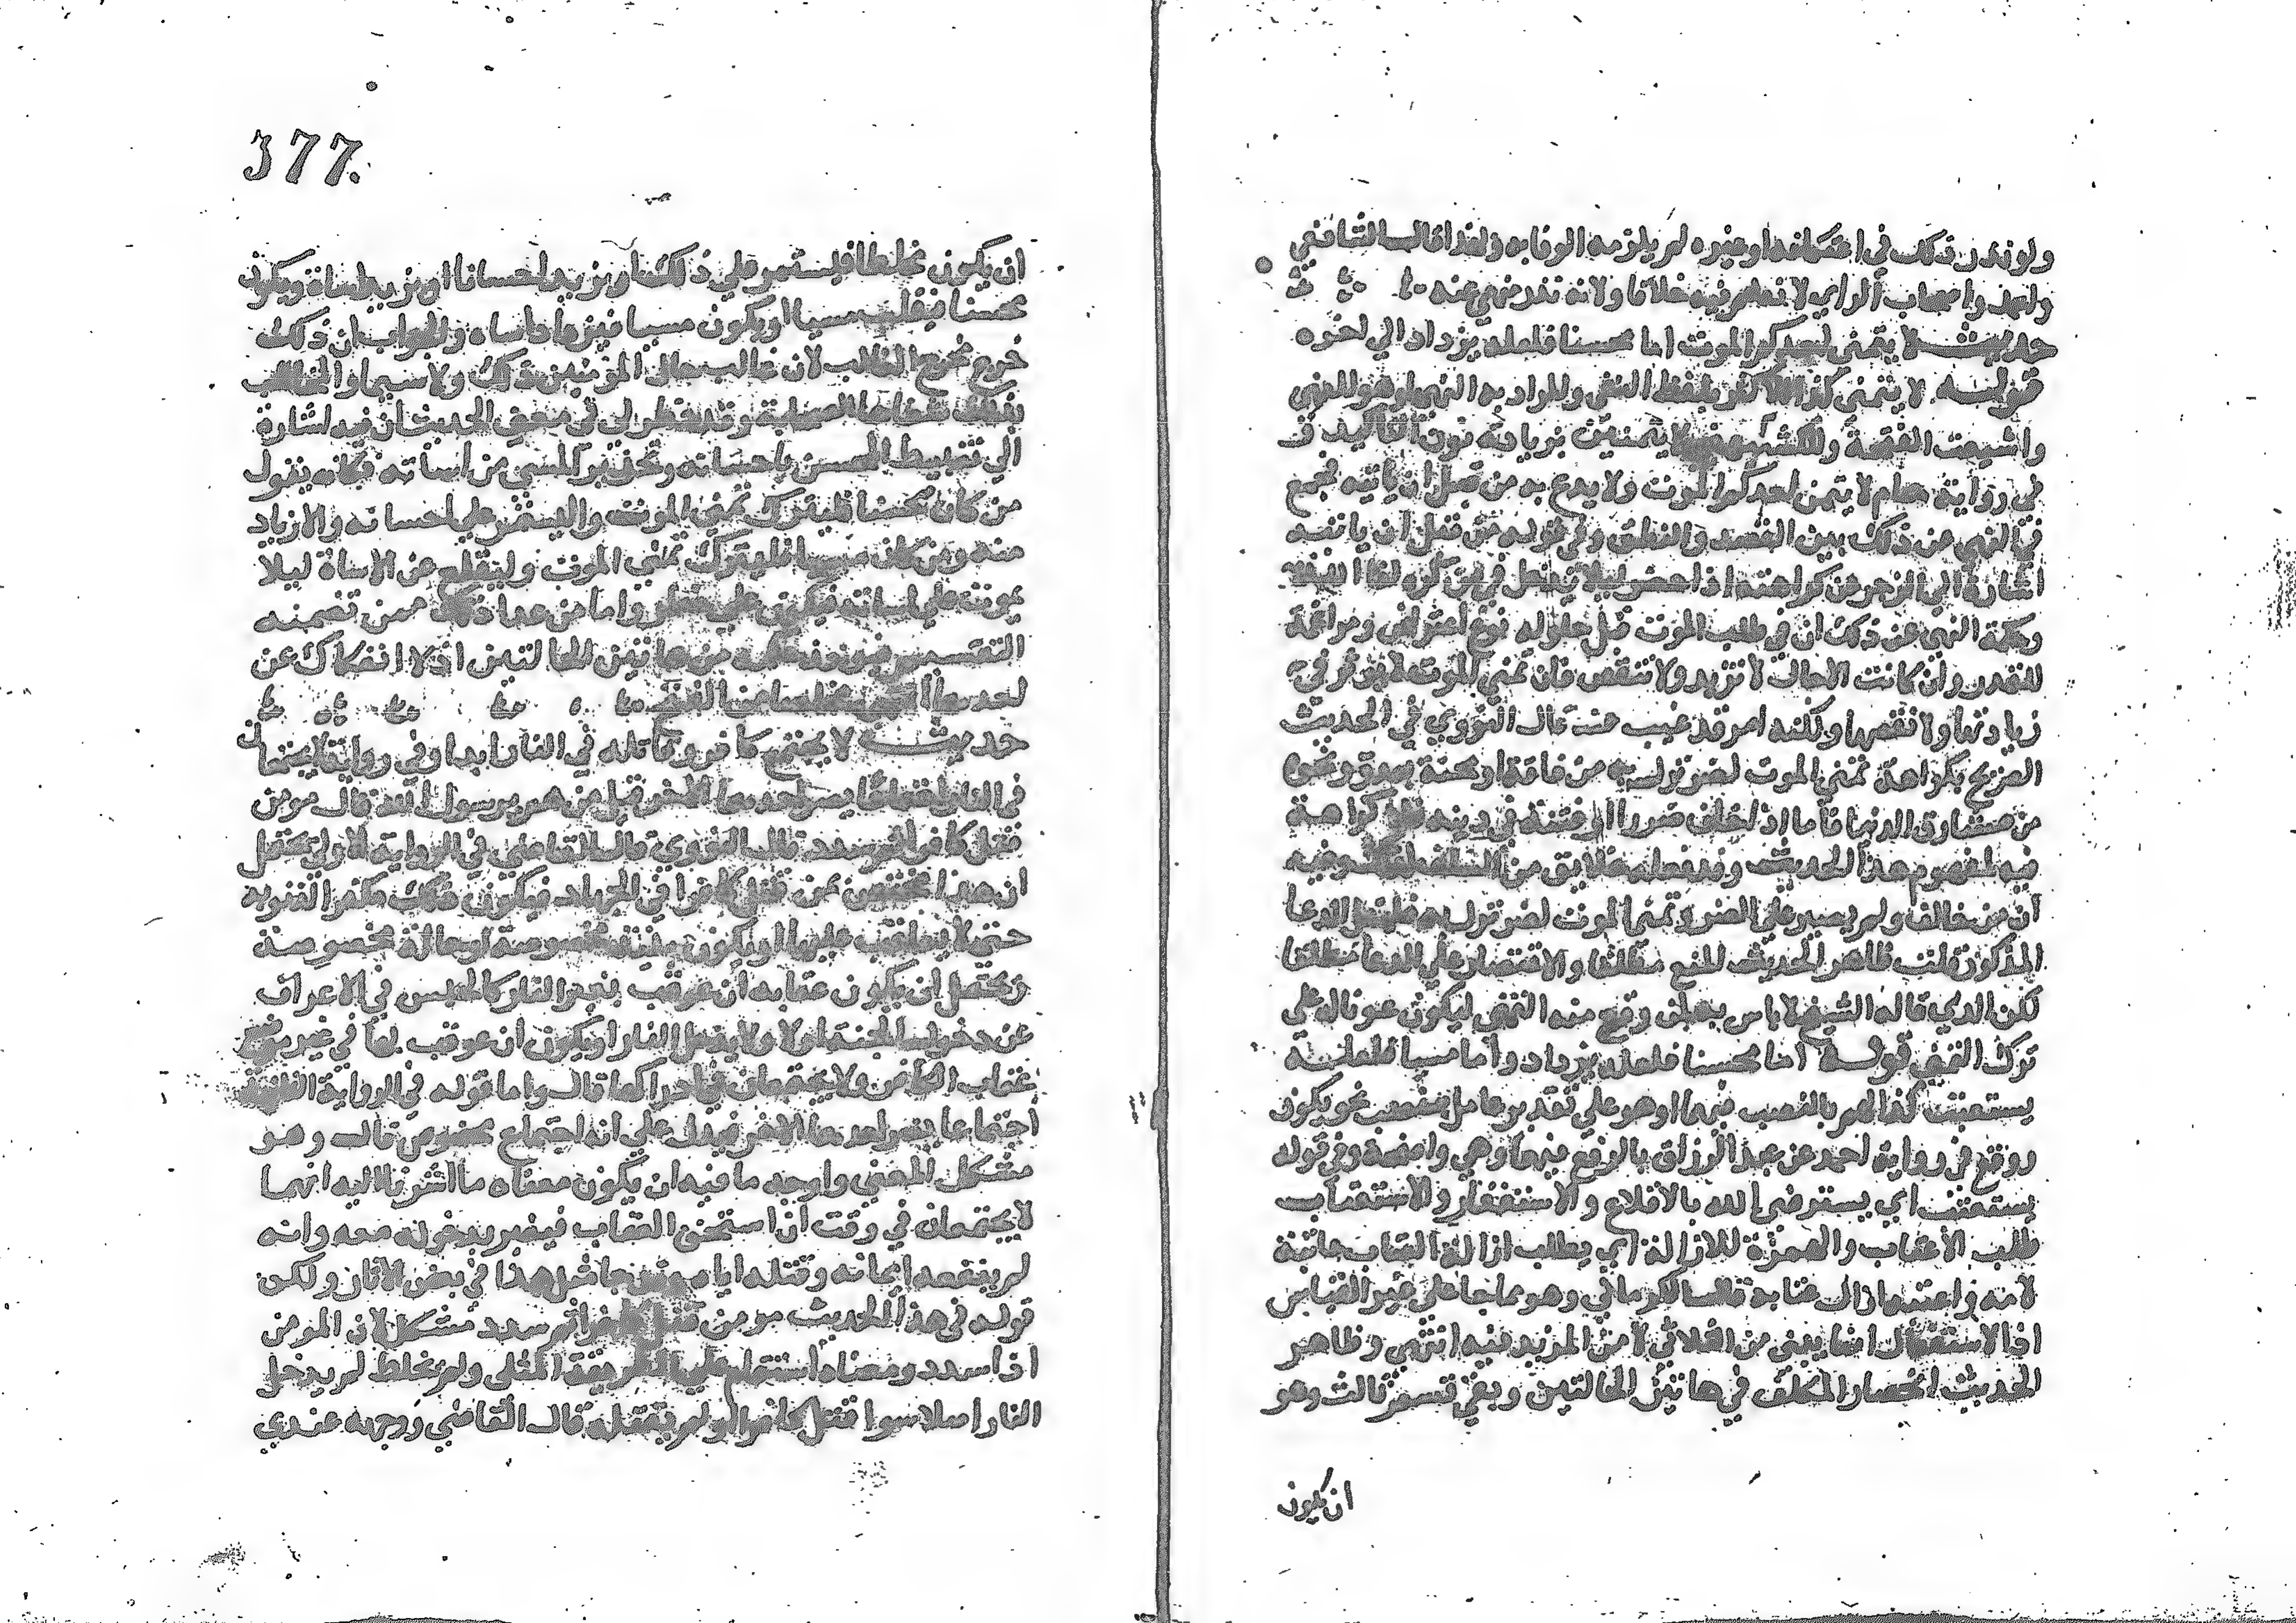 ولو نذر ذلك في اعتكافه او غيره لم يلزمه الوفا به وبهذا قال الشافعي
واحمد واصحاب الراي لا نعلم فيه خلافا ولانه نذر منهي عنه
حديث لا يتمنى احدكم الموت اما محسنا فلعله يزداد الي اخره
قوله لا يتمنى كذا للاكثر بلفظ النفي والمراد به النهي او هو للنهي
واشبعت الفتحة وللكشميهني لا يتمنين بزيادة نون التاكيد
في رواية همام لا يتمن احدكم الموت ولا يدع به من قبل ان ياتيه فجمع
في النهي عن ذلك بين القصد والنطق وفي قوله من قبل ان ياتيه
اشارة الي الزجر عن كراهته اذا حضر ليلا يدخل في من كره لقا الله
وحكمة النهي عن ذلك ان في طلب الموت قبل حلوله نوع اعتراض ومراغمة
للقدر وان كانت الاجال لا تزيد ولا تنقص فان تمني الموت لا يوثر في
زيادتها ولا نقصها ولكنه امر قد غيب عنه قال النووي في الحديث
الصريح بكراهة تمني الموت لضر نزل به من فاقة او محنة بعدو ونحوه
من مشاق الدنيا فاما اذا خاف ضررا او فتنة في دينه فلا كراهة
فيه لمفهوم هذا الحديث وقد فعله خلايق من السلف وفيه
ان من خالف ولم يصبر على الضر وتمنى الموت لضر نزل به فليقل الدعا
المذكور قلت ظاهر الحديث المنع مطلقا والاقتصار علي الدعا مطلقا
لكن الذي قاله الشيخ لا باس به لمن وقع منه التمني ليكون عونا له على
ترك التمني قوله اما محسنا فلعله يزداد واما مسيا فلعله
يستعتب كذا لهم بالنصب فيهما وهو علي تقدير عامل نصب نحو يكون
ووقع في رواية احمد عن عبد الرزاق بالرفع فيهما وهي واضحة وفي قوله
يستعتب اي يسترضي الله بالاقلاع والاستغفار والاستعتاب
طلب الاعتاب والهمزة للازالة اي يطلب ازالة العتاب عاتبه
لامه واعتبه ازال عتابه قال الكرماني وهو مما جا علي غير القياس
اذ الاستفعال انما يبنى من الثلاثي لا من المزيد فيه انتهي وظاهر
الحديث انحصار المكلف في هاتين الحالتين وبقي قسم ثالث وهو
ان يكون
377
ان يكون مخلطا فيستمر علي ذلك او يزيد احسانا او يزيد اساة او يكون
محسنا فينقلب مسيا او يكون مسيا فيزداد اساه والجواب ان ذلك
خرج مخرج الغالب لان غالب حال المؤمنين ذلك ولا سيما والمخاطب
بذلك شفاها الصحابة وقد خطر لي في معنى الحديث ان فيه اشارة
الي تغبيط المحسن باحسانه وتحذير المسي من اساته فكانه يقول
من كان محسنا فليترك تمني الموت وليستمر علي احسانه والازدياد
منه ومن كان مسيا فليترك تمني الموت وليقلع عن الاساة ليلا
يموت علي اساته فيكون علي خطر واما من عدا ذلك ممن تضمنه
التقسيم فيوخذ حكمه من هاتين الحالتين اذ لا انفكاك عن
احدهما
حديث لا يجتمع كافر وقاتله في النار ابدا وفي رواية لا يجتمعان
في النار اجتماعا يضر احدهما الاخر قيل من هم يرسول الله قال مومن
قتل كافرا ثم سدد قال النووي قال القاضي في الرواية الاولي يحتمل
ان هذا مختص بمن قتل كافرا في الجهاد فيكون ذلك مكفرا لذنوبه
حتي لا يعاقب عليها او يكون بنية مخصوصة او حالة مخصوصة
ويحتمل ان يكون عقابه ان عوقب بغير النار كالحبس في الاعراف
عن دخول الجنة اولا ولا يدخل النار او يكون ان عوقب بها في غير موضع
عقاب الكافر ولا يجتمعان في ادراكها قال واما قوله في الرواية الثانية
اجتماعا يضر احدهما الاخر فيدل علي انه اجتماع مخصوص قال وهو
مشكل المعني واوجه ما فيه ان يكون معناه ما اشرنا اليه انهما
لا يجتمعان في وقت ان استحق العقاب فيعيره بدخوله معه وانه
لم ينفعه ايمانه وقتله اياه وقد جا مثل هذا في بعض الاثار ولكن
قوله في هذا الحديث مومن قتل كافرا ثم سدد مشكل لان المومن
اذا سدد ومعناه استقام علي الطريقة المثلى ولم يخلط لم يدخل
النار اصلا سوا قتل كافرا او لم يقتله قال القاضي ووجهه عندي